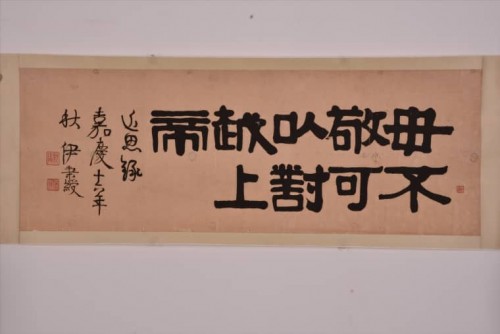 毋不
敬可
以對
越上
帝
近思錄
嘉慶十六年
秋 伊秉綬